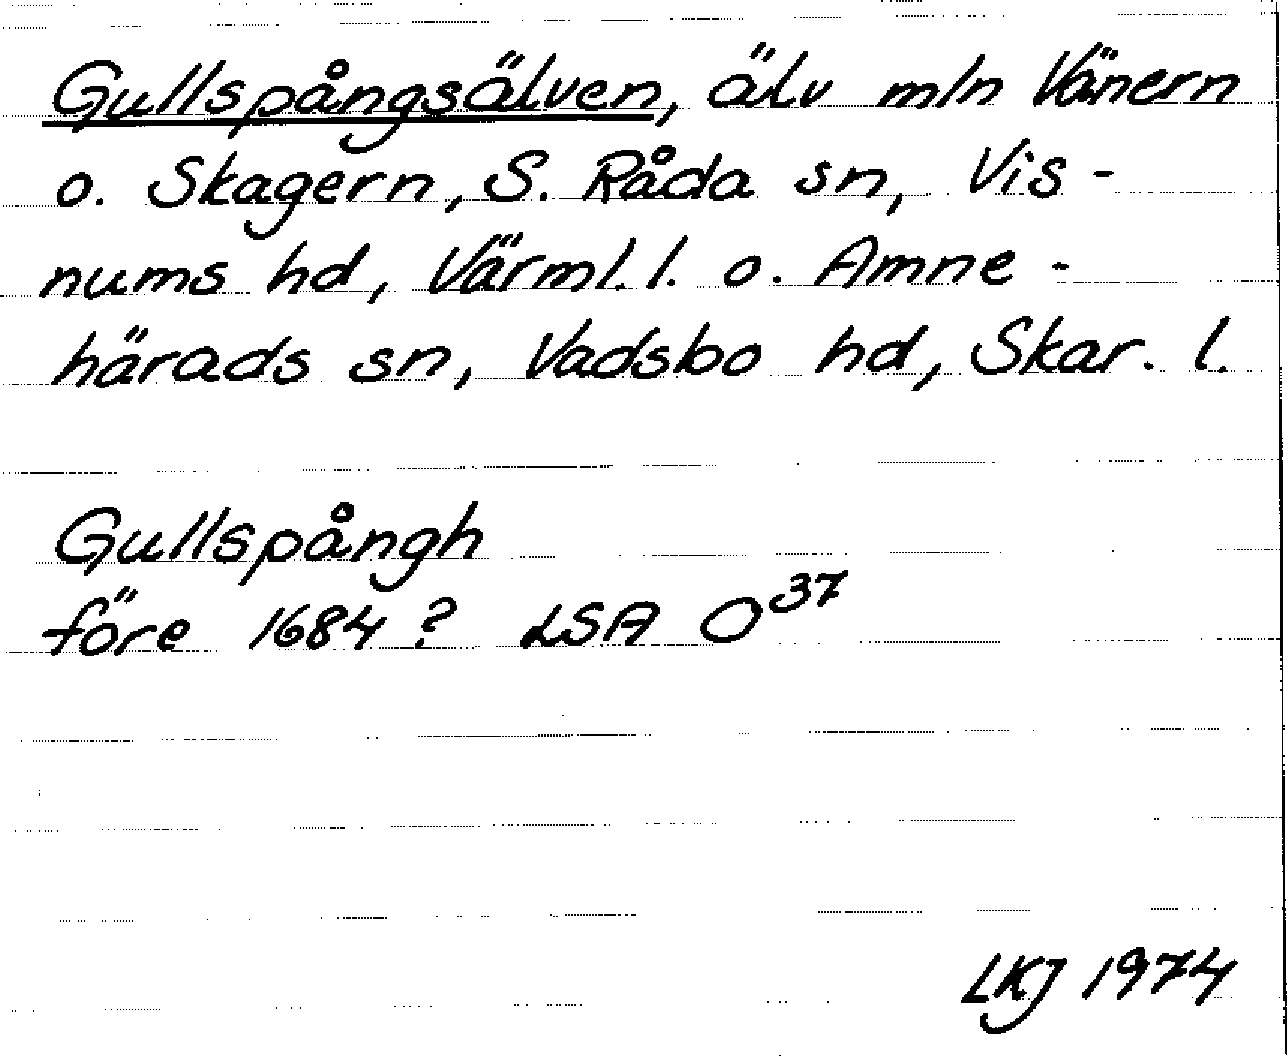 Gullspångsälven, älv mln Vänern
o. Skagern, S. Råda sn, Vis-
nums hd, Värml. l. o. Amne-
härads sn, Vadsbo hd, Skar. l.
Gullspångh
före 1684? LSA O³⁷
LKJ 1974